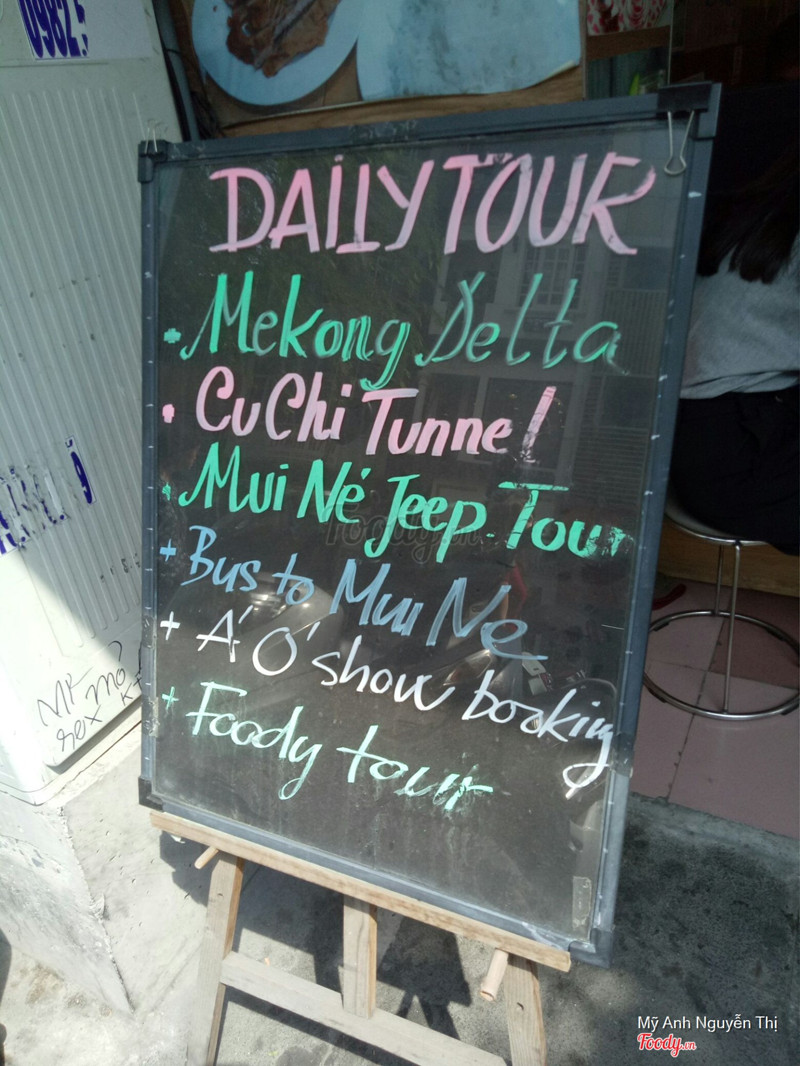 0982
DAILY TOUR
+ Mekong Delta
+ Cu Chi Tunnel
+ Mui Né Jeep Tour
+ Bus to Mui Ne
+ Á Ó show booking
+ Foody tour
Foody.vn
Mỹ Anh Nguyễn Thị
Foody.vn